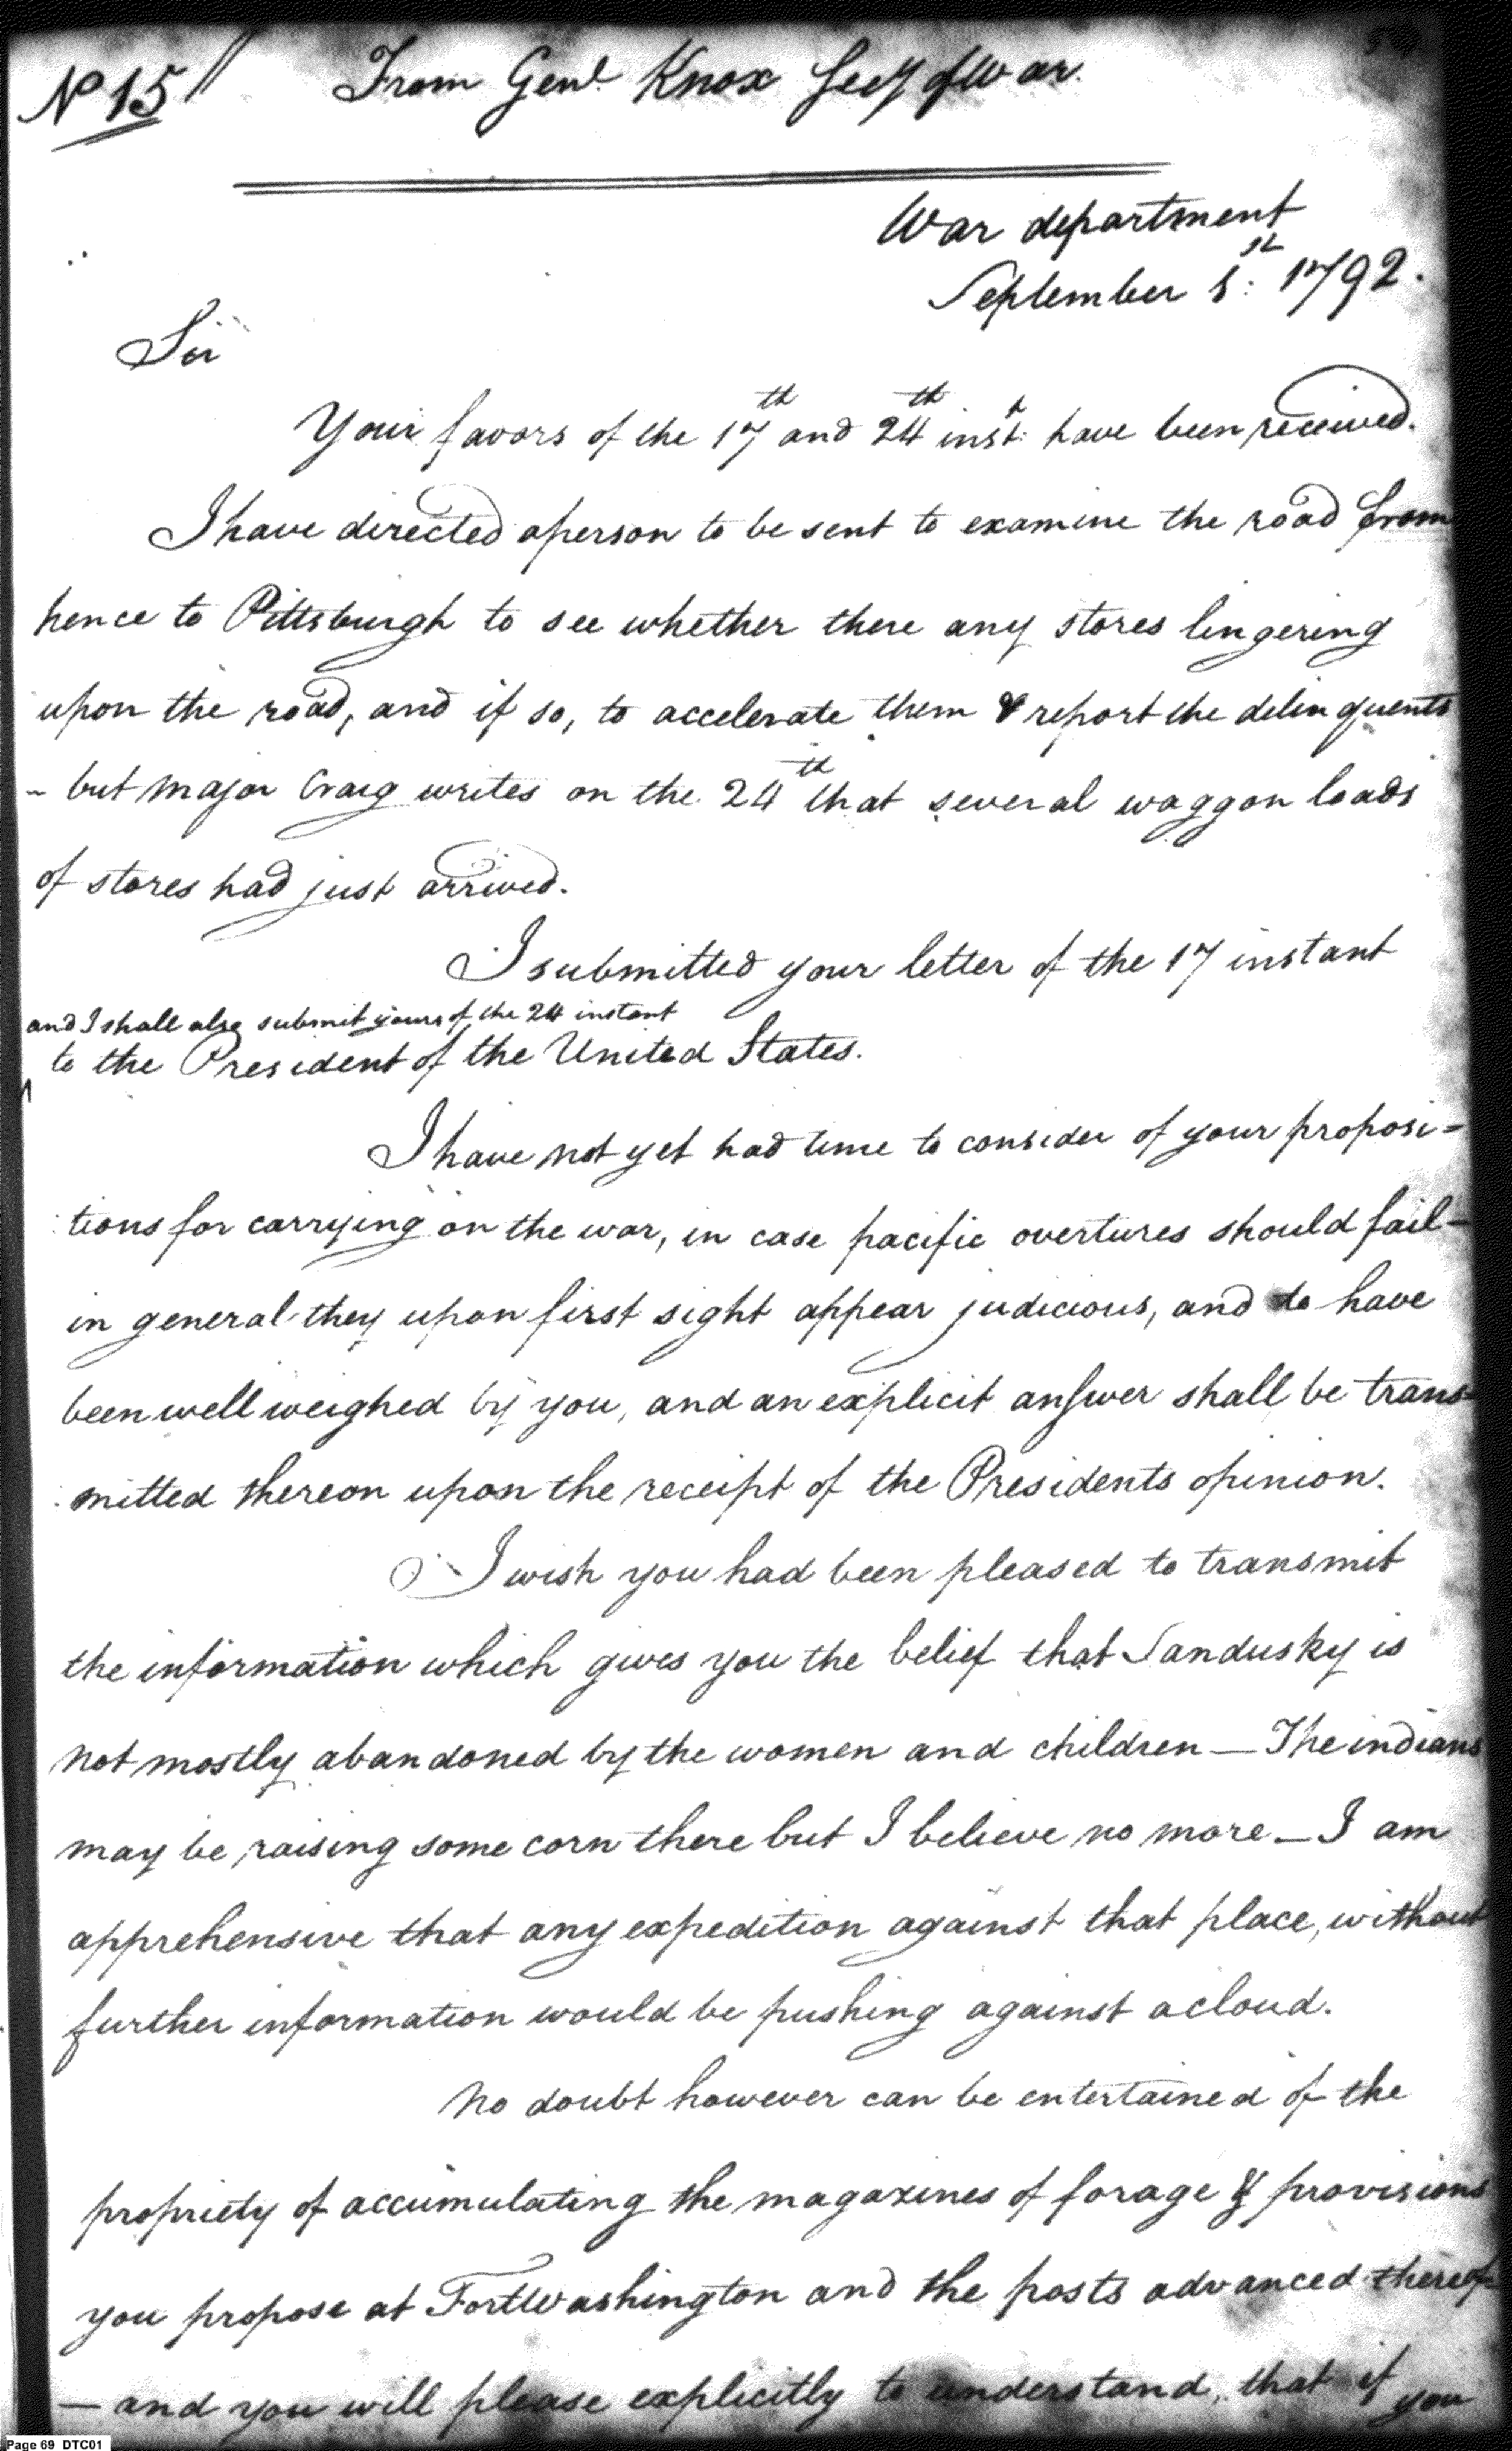 No 15 // From Genl. Knox Secy of War.
War department
September 1st: 1792.
Sir
Your favors of the 17th and 24th inst: have been received.
I have directed a person to be sent to examine the road from
hence to Pittsburgh to see whether there any stores lingering
upon the road, and if so, to accelerate them & report the delinquents
- but Major Craig writes on the 24th that several waggon loads
of stores had just arrived.
I submitted your letter of the 17 instant
and I shall also submit yours of the 24 instant
^ to the President of the United States.
I have not yet had time to consider of your proposi=
tions for carrying on the war, in case pacific overtures should fail -
in general they upon first sight appear judicious, and to have
been well weighed by you, and an explicit answer shall be trans=
mitted thereon upon the receipt of the Presidents opinion.
I wish you had been pleased to transmit
the information which gives you the belief that Sandusky is
not mostly abandoned by the women and children — The indians
may be raising some corn there but I believe no more — I am
apprehensive that any expedition against that place, without
further information would be pushing against a cloud.
No doubt however can be entertained of the
propriety of accumulating the magazines of forage & provisions
you propose at Fort Washington and the posts advanced thereof
— and you will please explicitly to understand, that if you
Page 69 DTC01